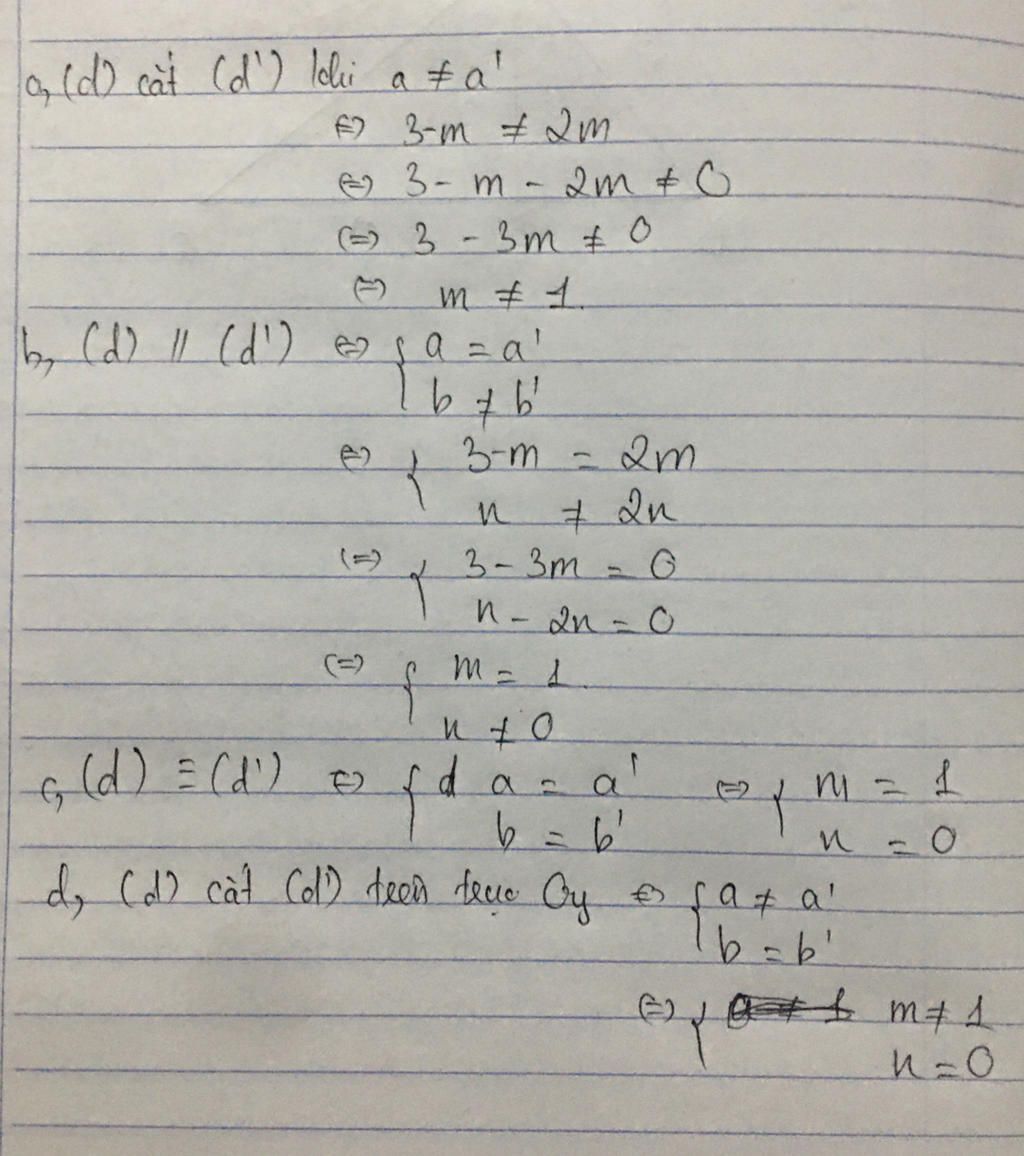 a, (d) cắt (d') khi a ≠ a'
⇔ 3-m ≠ 2m
⇔ 3 - m - 2m ≠ 0
⇔ 3 - 3m ≠ 0
⇔ m ≠ 1.
b, (d) // (d') ⇔ { a = a'
b ≠ b'
⇔ { 3-m = 2m
n ≠ 2n
⇔ { 3 - 3m = 0
n - 2n = 0
⇔ { m = 1
n ≠ 0
c, (d) ≡ (d') ⇔ { d a = a' ⇔ { m = 1
b = b' n = 0
d, (d) cắt (d') trên trục Oy ⇔ { a ≠ a'
b = b'
⇔ { m ≠ 1
n = 0